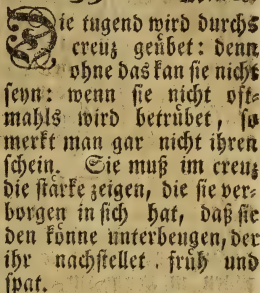 Die tugend wird durchs
creuz geübet: denn
ohne das kan sie nicht
seyn: wenn sie nicht oft-
mahls wird betrübet, so
merkt man gar nicht ihren
schein. Sie muß im creuz
die stärke zeigen, die sie ver-
borgen in sich hat, daß sie
den könne unterbeugen, der
ihr nachstellet früh und
spat.